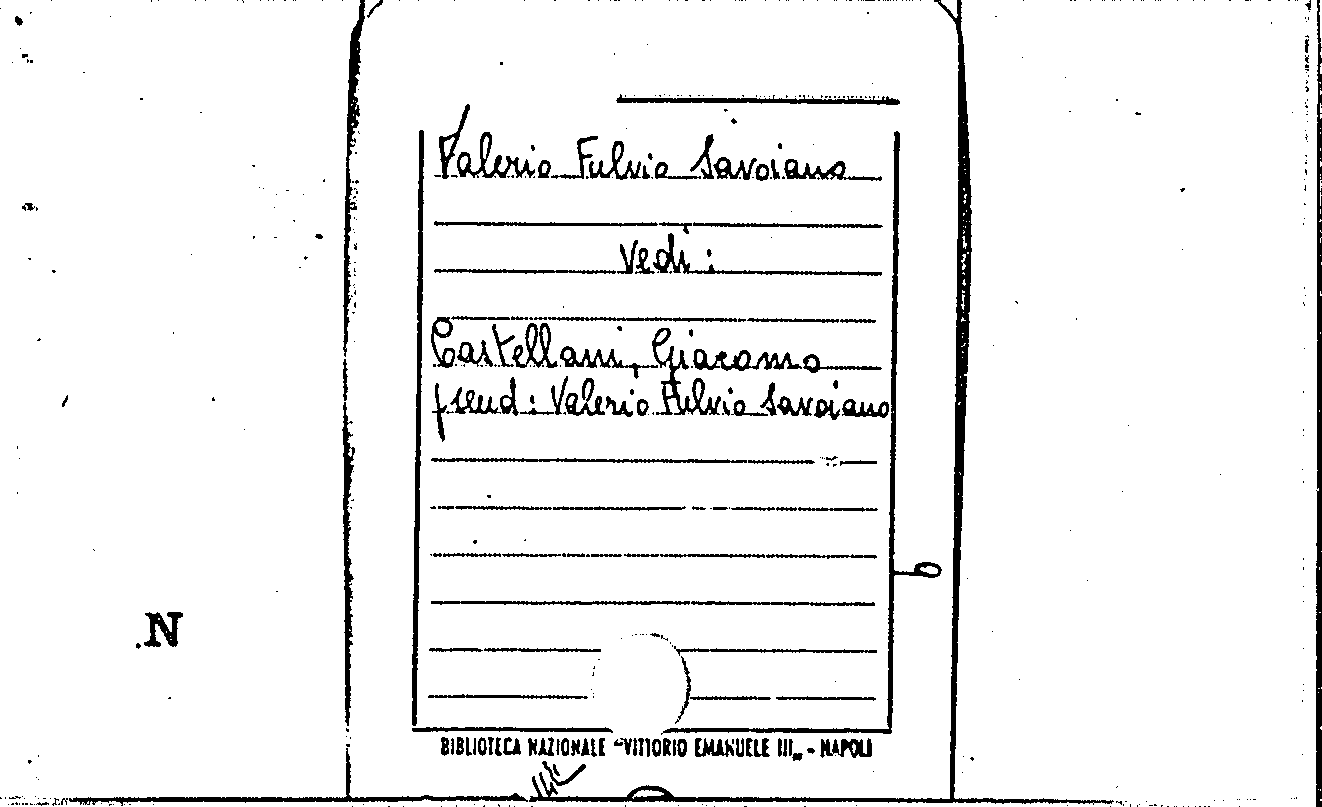 Valerio Fulvio Savoiano
Vedi:
Castellani, Giacomo
pseud: Valerio Fulvio Savoiano
6
.N
BIBLIOTECA NAZIONALE "VITTORIO EMANUELE III„ - NAPOLI